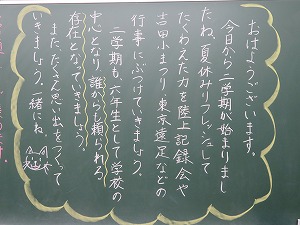 おはようございます。
今日から二学期が始まりまし
たね。夏休みリフレッシュして
たくわえた力を陸上記録会や
吉田小まつり、東京遠足などの
行事にぶつけていきましょう。
二学期も、六年生として学校の
中心となり、誰からも頼られる
存在となっていきましょう。
また、たくさん思い出をつくって
いきましょう。一緒にね。